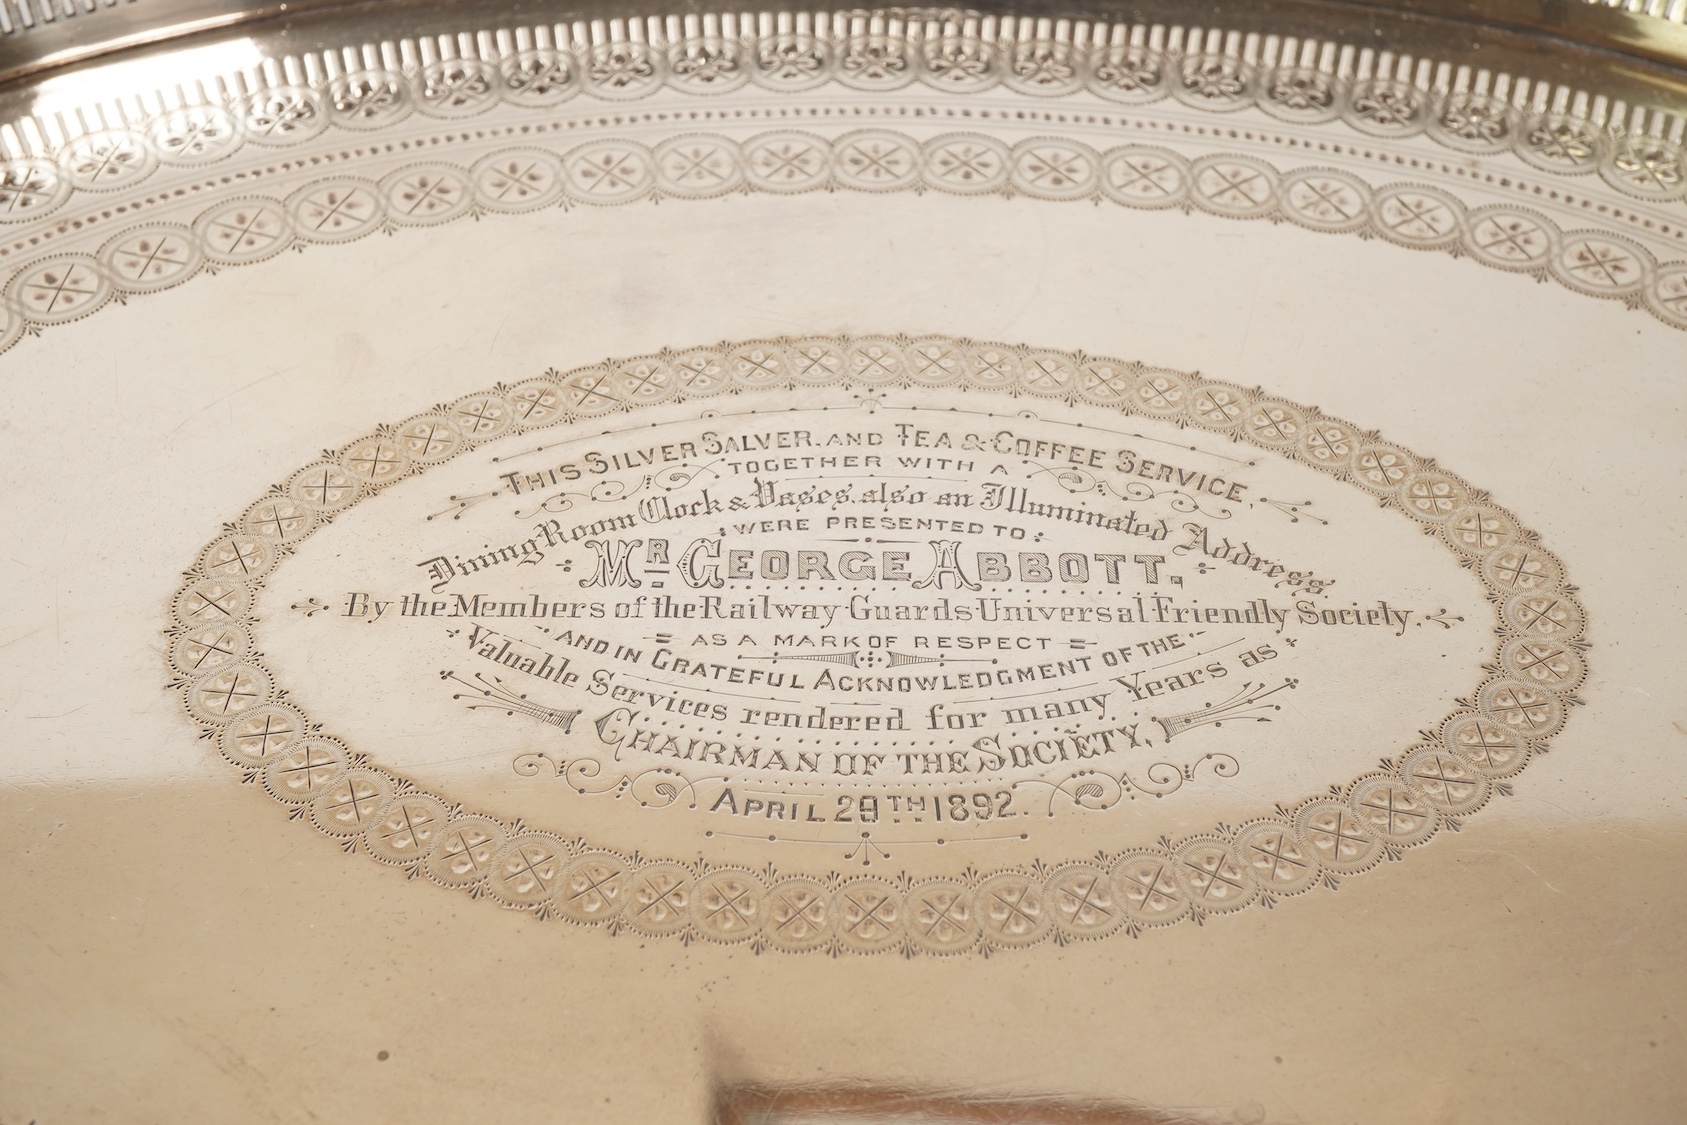 THIS SILVER SALVER, AND TEA & COFFEE SERVICE,
TOGETHER WITH A
Dining Room Clock & Vases, also an Illuminated Address
WERE PRESENTED TO
MR GEORGE ABBOTT,
By the Members of the Railway Guards Universal Friendly Society,
AS A MARK OF RESPECT
AND IN GRATEFUL ACKNOWLEDGMENT OF THE
Valuable Services rendered for many Years as
CHAIRMAN OF THE SOCIETY,
APRIL 29TH 1892.